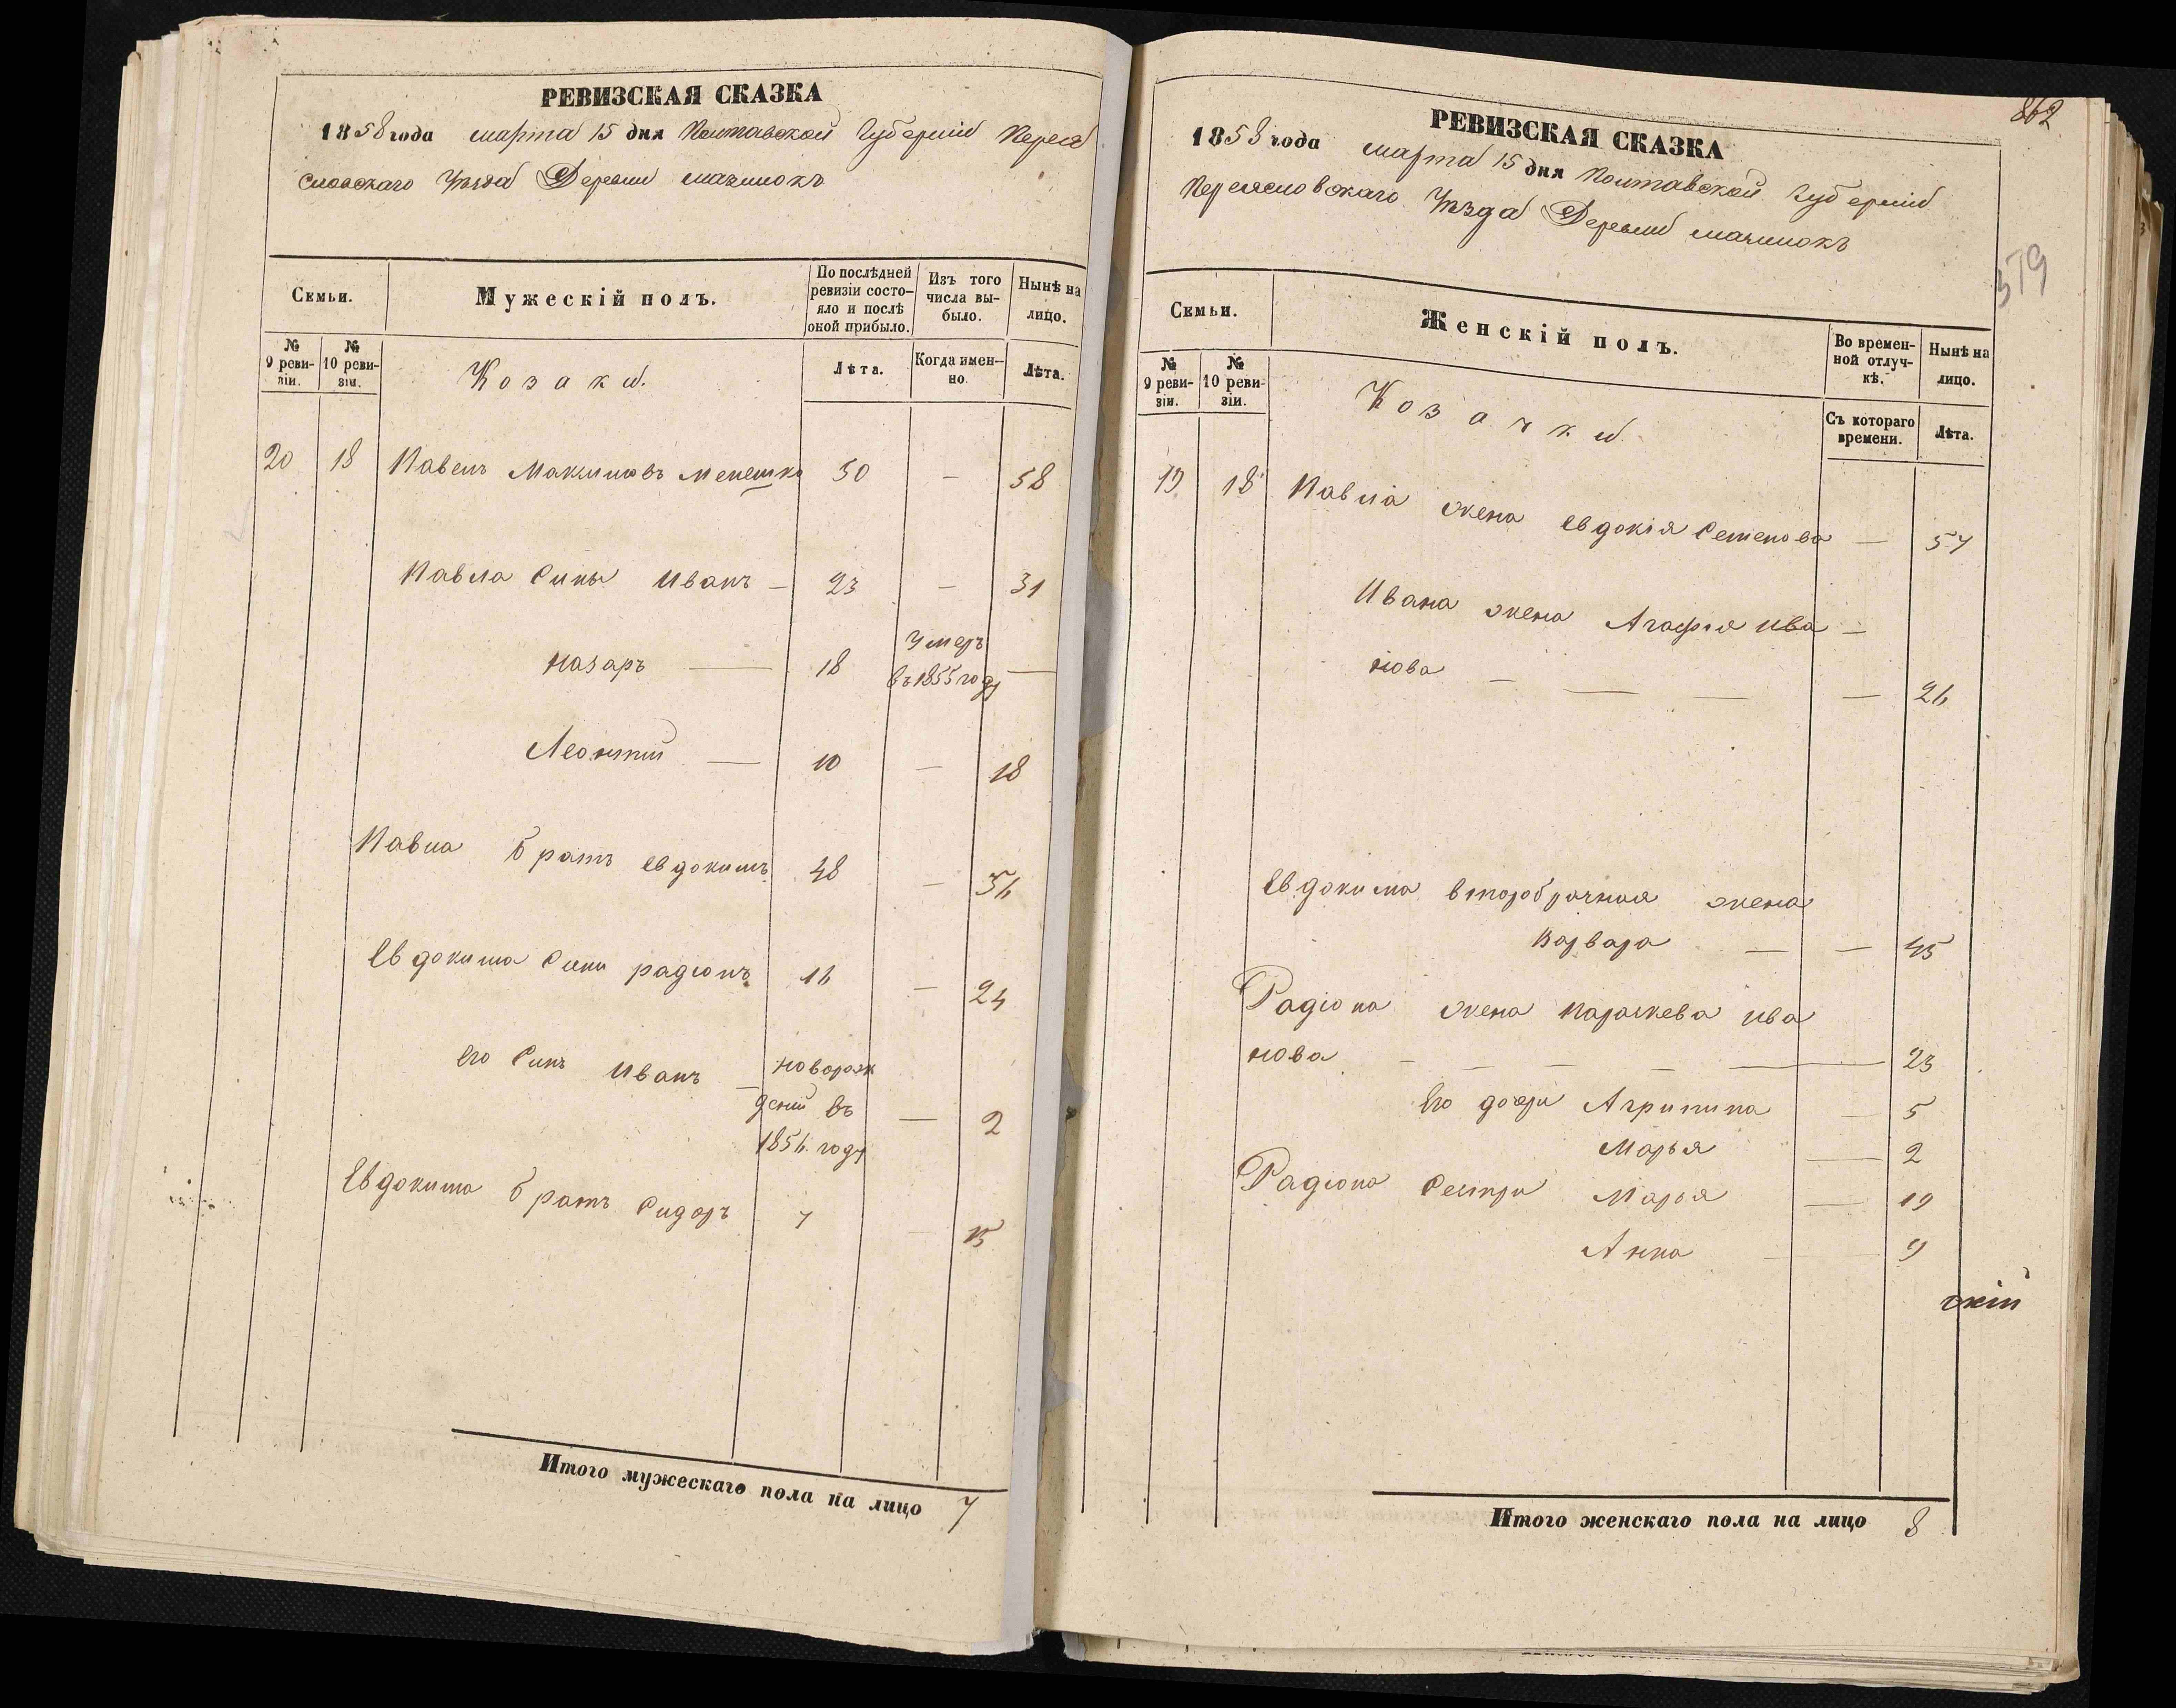 РЕВИЗСКАЯ СКАЗКА
1858 года марта 15 дня Полтавской Губерніи Перея
словскаго Уѣзда Деревни
Семьи.
Мужескій полъ.
По послѣдней ревизіи состояло и послѣ оной прибыло.
Изъ того числа выбыло.
Нынѣ на лицо.
№ 9 ревизіи.
№ 10 ревизіи.
Козаки.
Лѣта.
Когда именно.
Лѣта.
20 18 Павелъ Максимовъ 50 — 58
Павла Сины Иванъ — 23 — 31
Назаръ — 18 Умеръ въ 1855 году —
Леонтій — 10 — 18
Павла братъ Евдокимъ 48 — 56
Евдокима Сини радіонъ 16 — 24
Его Синъ Иванъ — новорож
дений въ — 2
1856. году
Евдокима братъ Сидоръ 7 — 15
Итого мужескаго пола на лицо 7
862
379
РЕВИЗСКАЯ СКАЗКА
1858 года марта 15 дня Полтавской Губерніи
Переясловскаго Уѣзда Деревни
Семьи.
Женскій полъ.
Во временной отлучкѣ.
Нынѣ на лицо.
№ 9 ревизіи.
№ 10 ревизіи.
Козачки.
Съ котораго времени.
Лѣта.
19 18 Павла жена Евдокія Семенова — 57
Ивана жена Агафия Ива —
нова — — — — 26
Евдокима второбрачная жена
Варвара — — 45
Радіона жена Параскева Ива
нова — — — — — 23
Его дочери Агрипина — 5
Марья — 2
Радіона Сестри Марья — 19
Анна — 9
скій
Итого женскаго пола на лицо 8